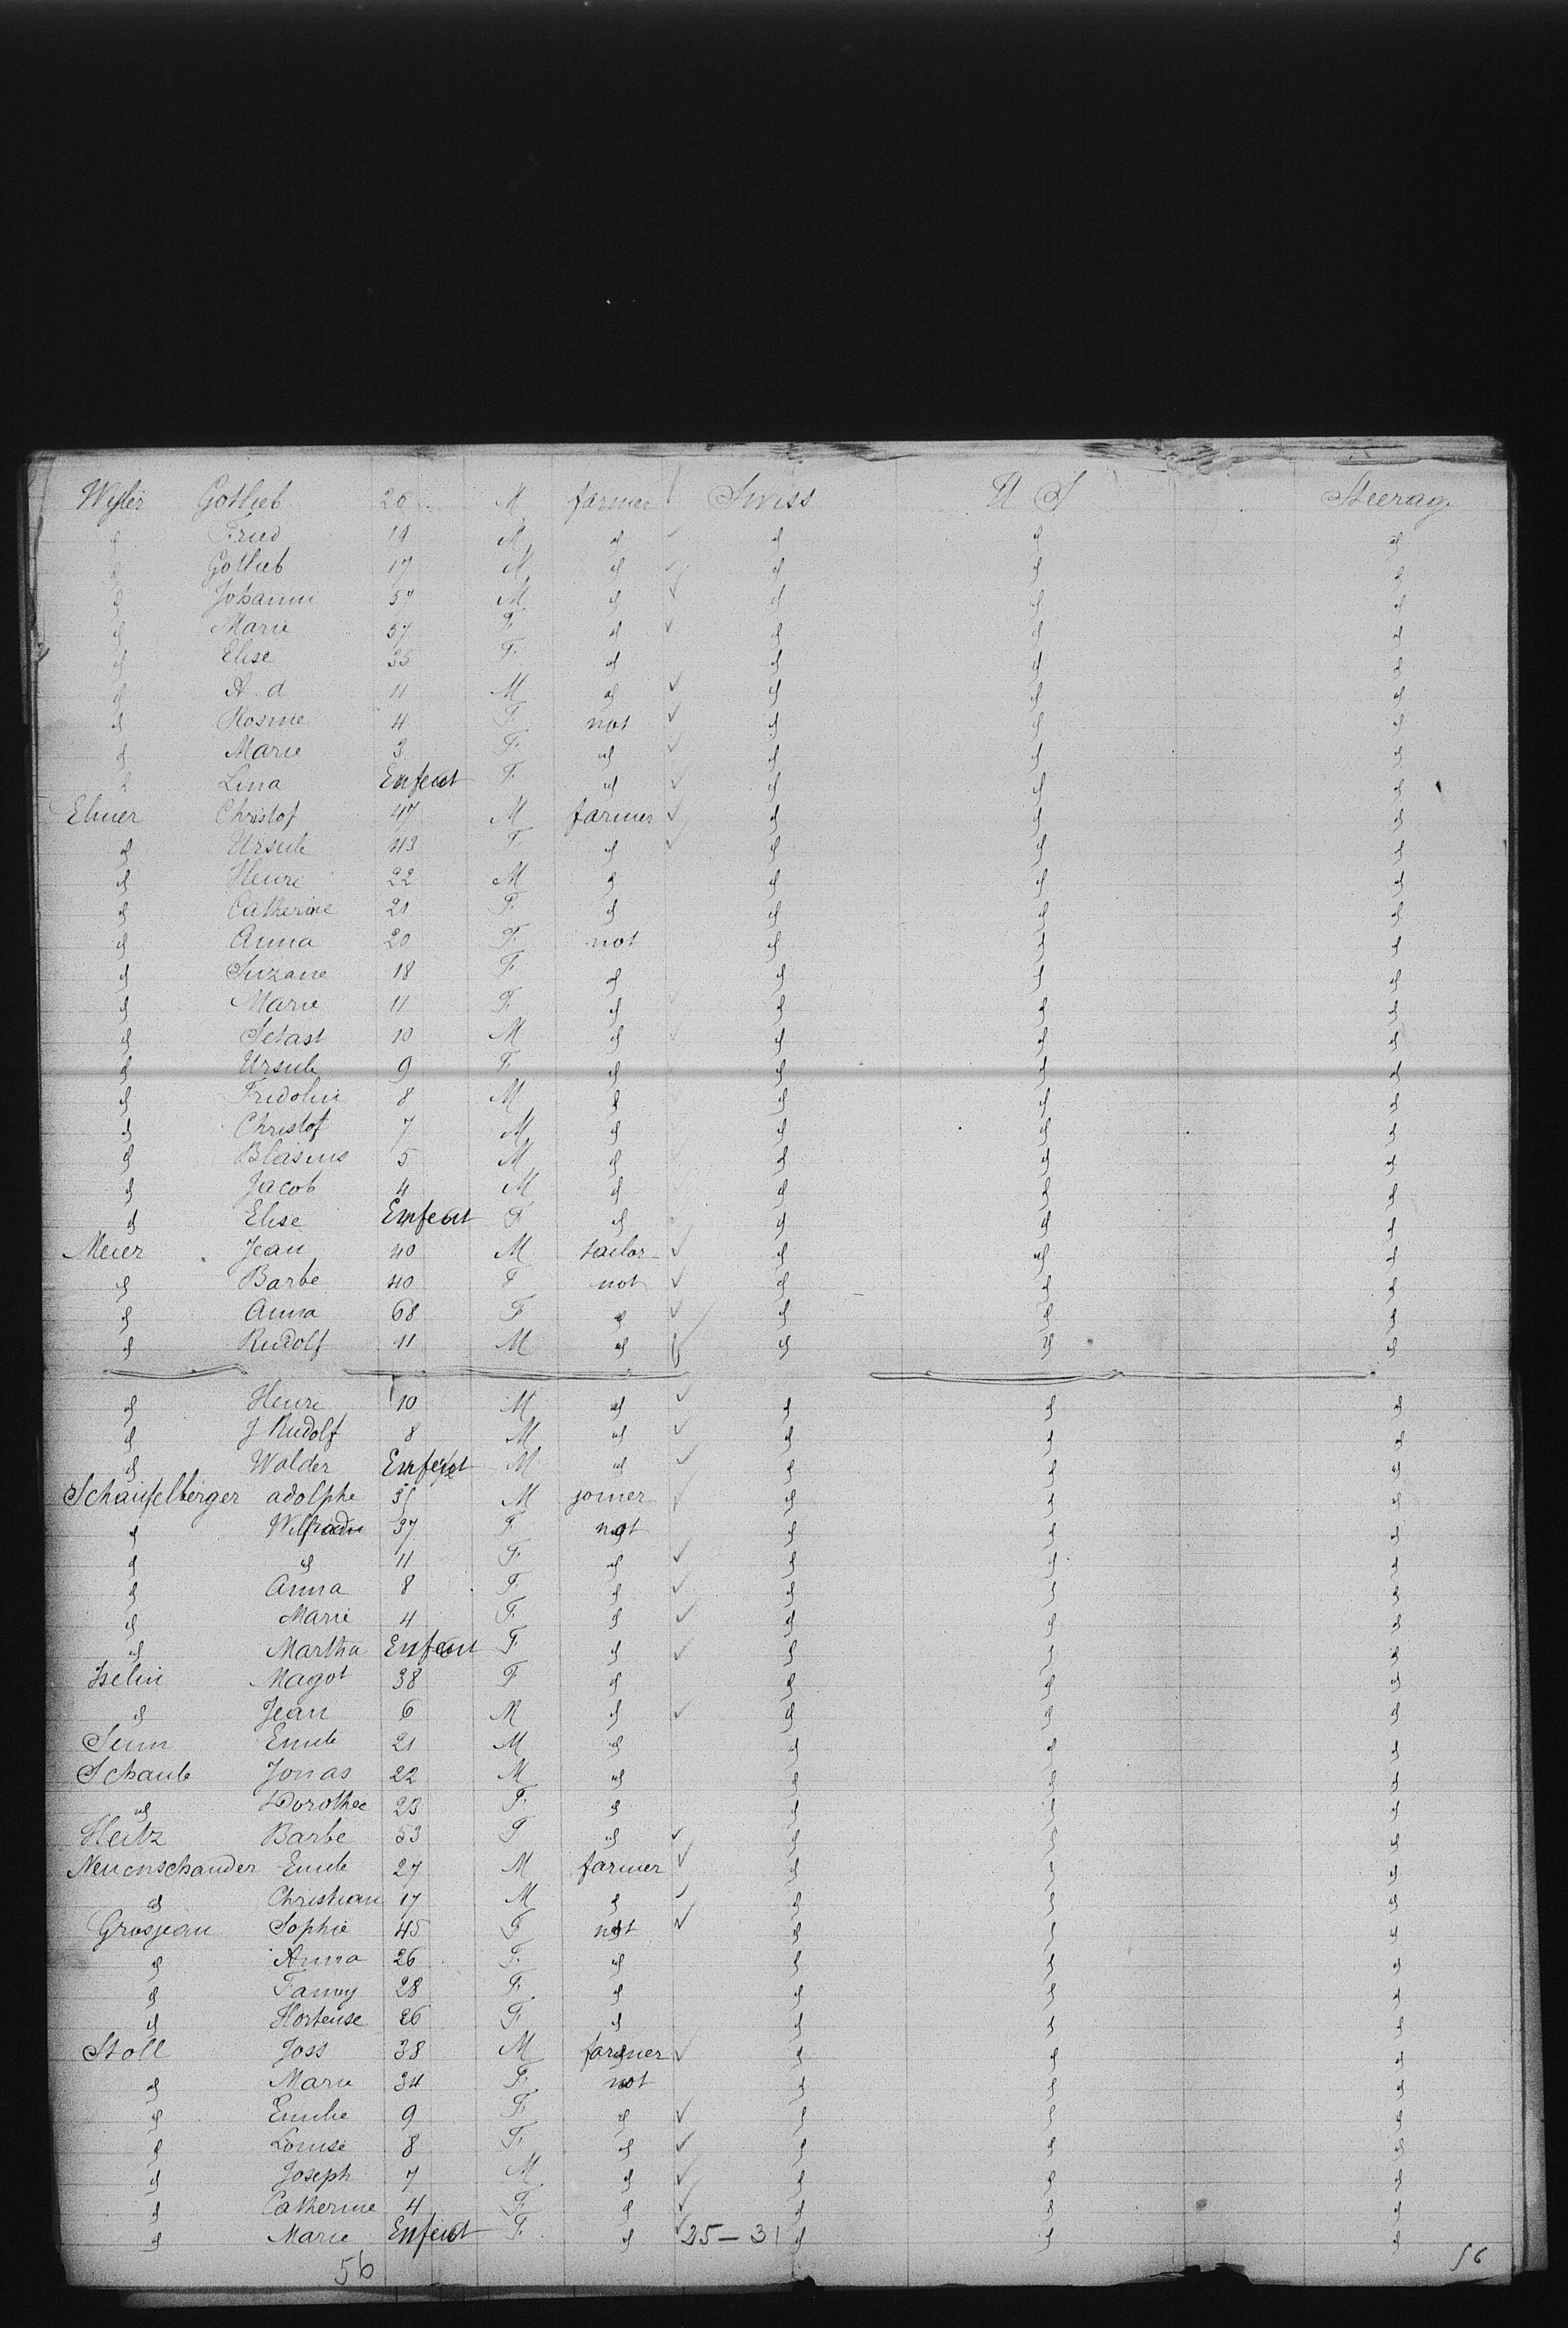 Wyler Gottlieb 20 M farmer Swiss U S Steerag
" Fried 19 M " " " "
" Gottlieb 17 M " " " "
" Johann 57 M " " " "
" Marie 57 F " " " "
" Elise 35 F " " " "
" A d 11 M " " " "
" Rosine 4 F not " " "
" Marie 3 F " " " "
" Lina Enfent F " " " "
Elmer Christof 47 M farmer " " "
" Ursule 43 F " " " "
" Henri 22 M " " " "
" Catherine 21 F " " " "
" Anna 20 F not " " "
" Suzane 18 F " " " "
" Marie 11 F " " " "
" Sebast 10 M " " " "
" Ursule 9 F " " " "
" Fridolin 8 M " " " "
" Christof 7 M " " " "
" Blasius 5 M " " " "
" Jacob 4 M " " " "
" Elise Enfent F " " " "
Meier Jean 40 M tailor " " "
" Barbe 40 F not " " "
" Anna 68 F " " " "
" Rudolf 11 M " " " "
" Henri 10 M " " " "
" J Rudolf 8 M " " " "
" Walder Enfent M " " " "
Schaufelberger adolphe M joiner " " "
" 37 F not " " "
" " 11 F " " " "
" Anna 8 F " " " "
" Marie 4 F " " " "
" Martha Enfent F " " " "
Iselin Magot 38 F " " " "
" Jean 6 M " " " "
Senn Emile 21 M " " " "
Schaub Jonas 22 M " " " "
" Dorothee 23 F " " " "
Heitz Barbe 53 F " " " "
Neuenschander Emile 27 M farmer " " "
" Christian 17 M " " " "
Grosjean Sophie 45 F not " " "
" Anna 26 F " " " "
" Fanny 28 F " " " "
" Hortense 26 F " " " "
Stoll Joss 38 M farmer " " "
" Marie 34 F not " " "
" Emilie 9 F " " " "
" Louise 8 F " " " "
" Joseph 7 M " " " "
" Catherine 4 F " " " "
" Marie Enfent F " 25-31 " " "
56 56